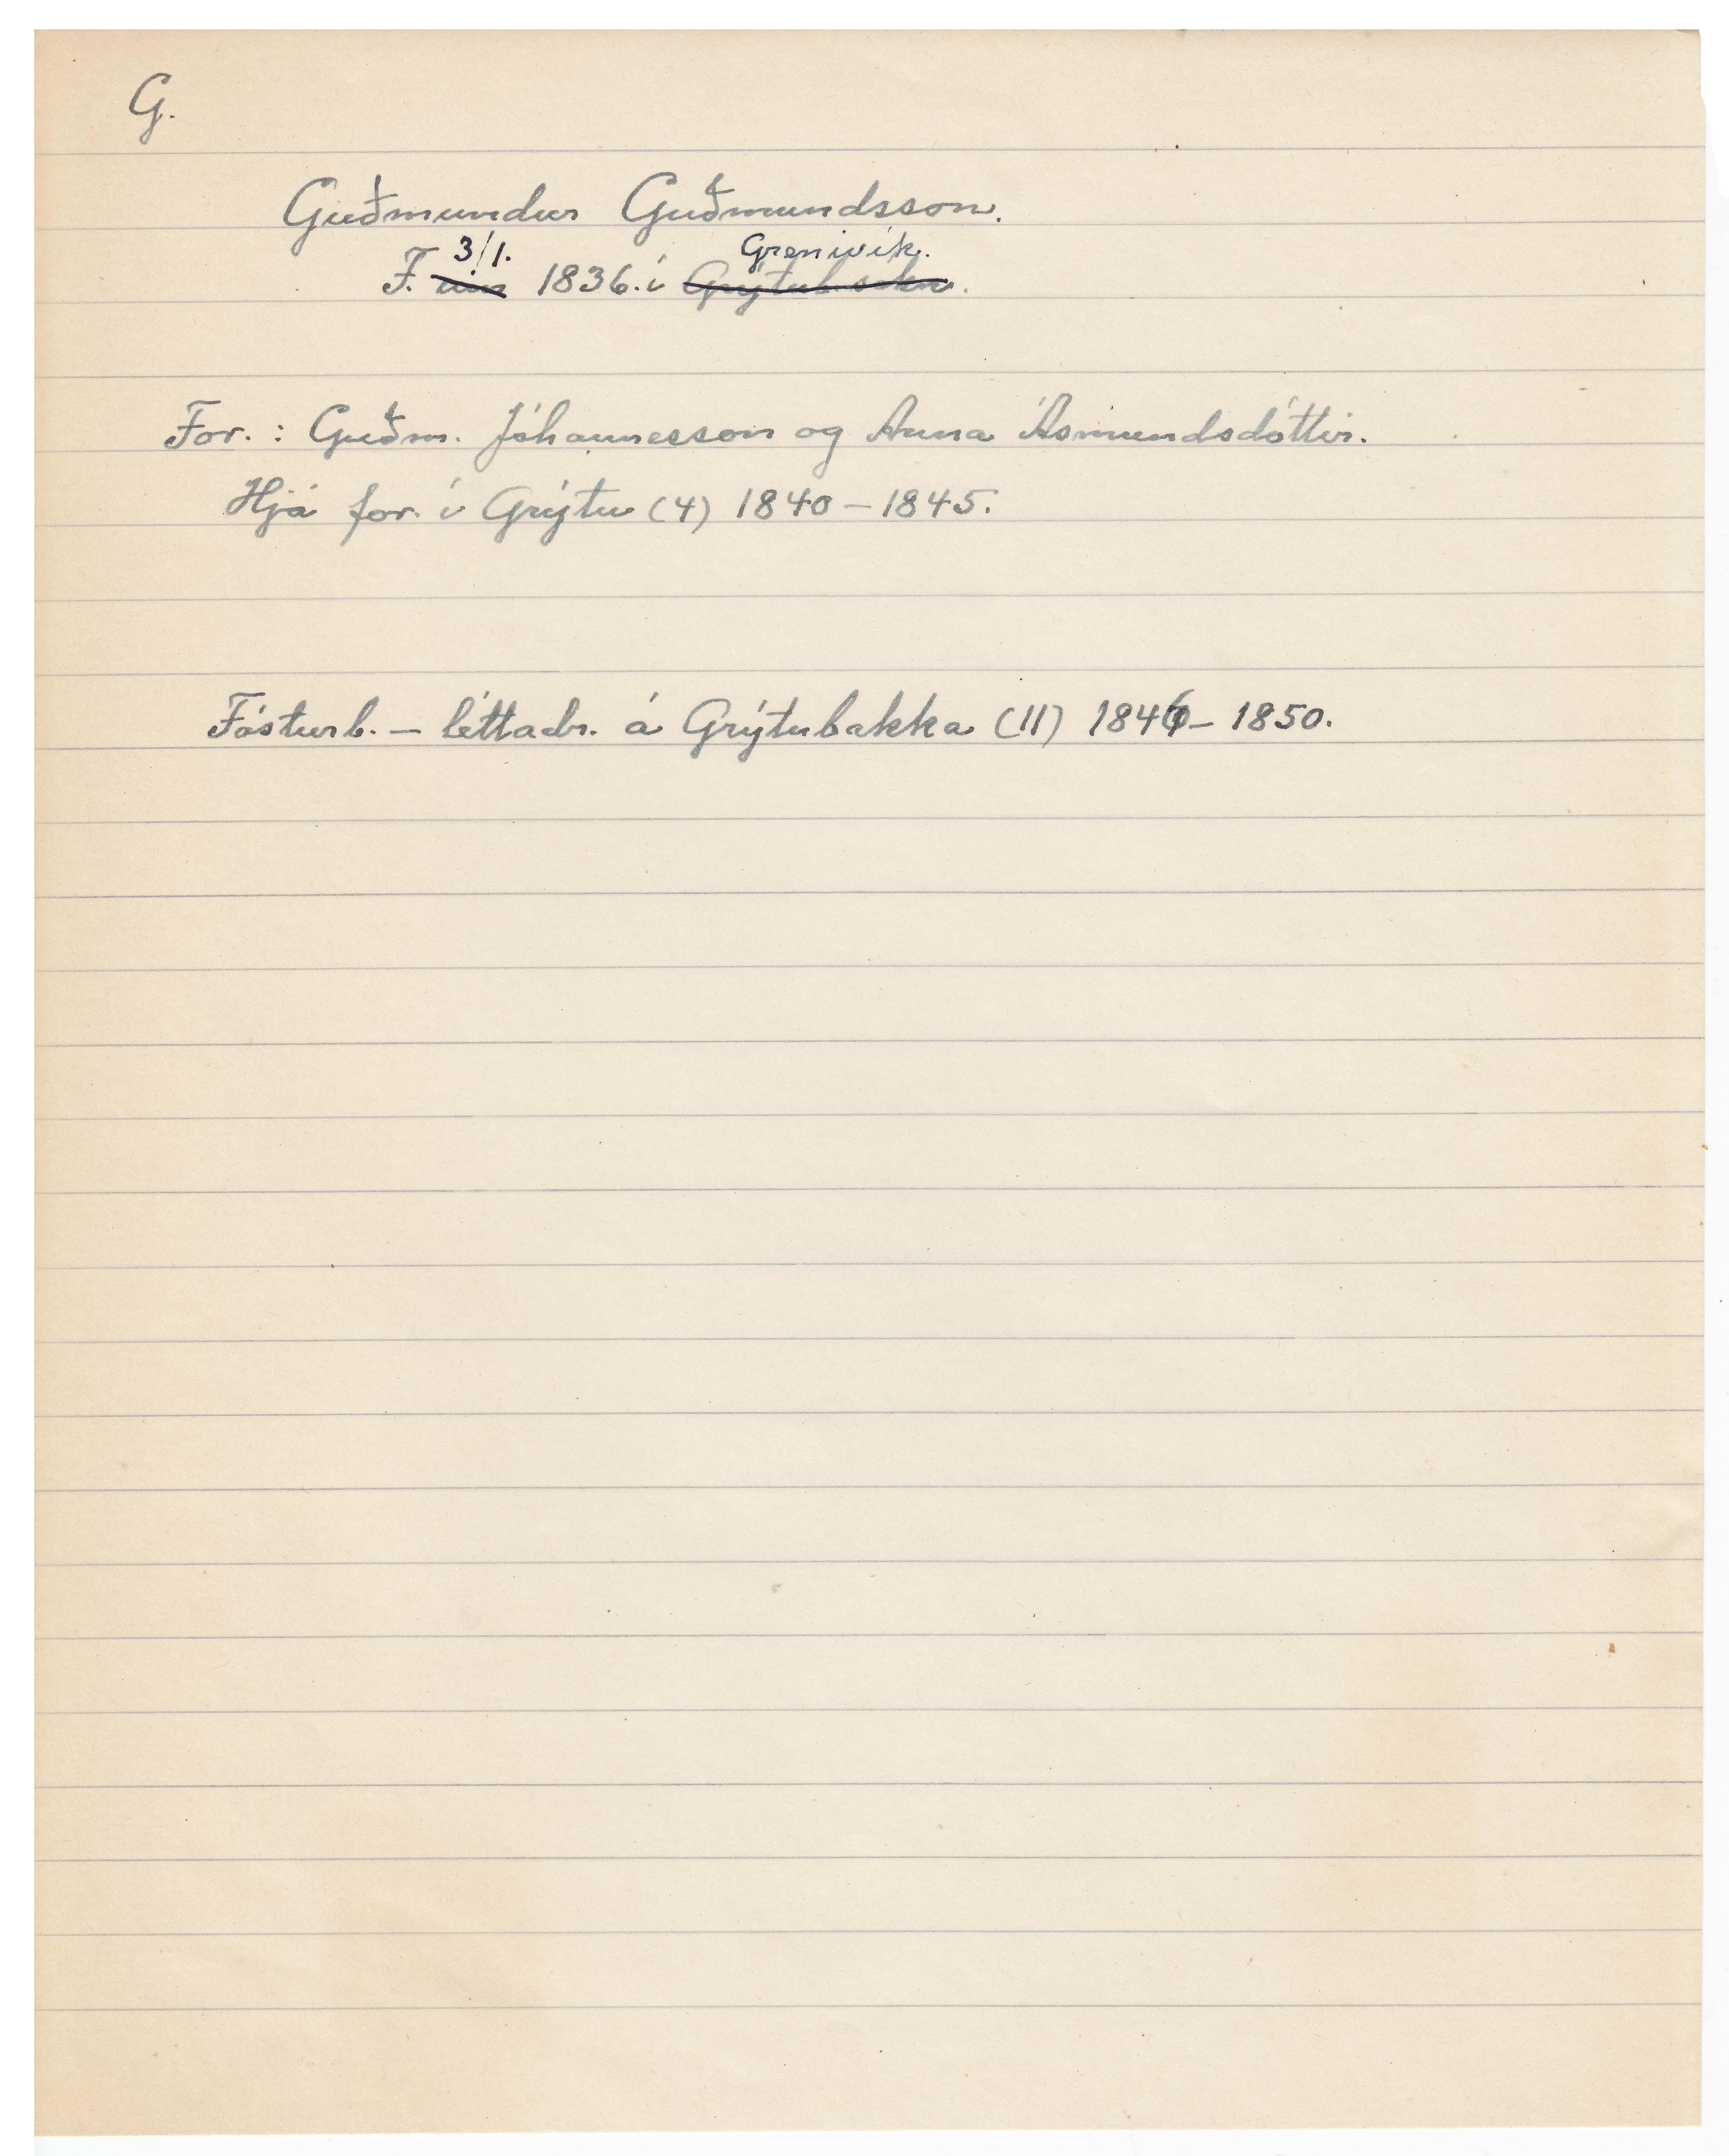 G.
Guðmundur Guðmundsson.
3/1. Grenivík.
F. um 1836. í Grýtub.sókn.
For. : Guðm. Jóhannesson og Anna Ásmundsdóttir.
Hjá for. í Grýtu (4) 1840 – 1845.
Fósturb. – léttadr. á Grýtubakka (11) 1846 – 1850.